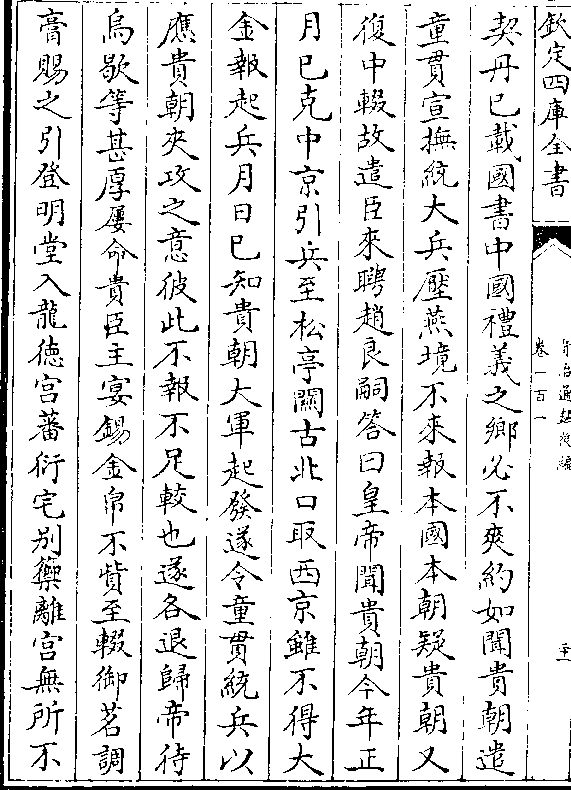 欽定四庫全書
資治通鑑後編
卷一百一
契丹已載國書中國禮義之鄉必不爽約如聞貴朝遣
童貫宣撫統大兵壓燕境不來報本國本朝疑貴朝又
復中輟故遣臣來聘趙良嗣答曰皇帝聞貴朝今年正
月已克中京引兵至松亭關古北口取西京雖不得大
金報起兵月日已知貴朝大軍起發遂令童貫統兵以
應貴朝夾攻之意彼此不報不足較也遂各退歸帝待
烏歇等甚厚屢命貴臣主宴錫金帛不貲至輟御茗調
膏賜之引登明堂入龍徳宮蕃衍宅别籞離宮無所不